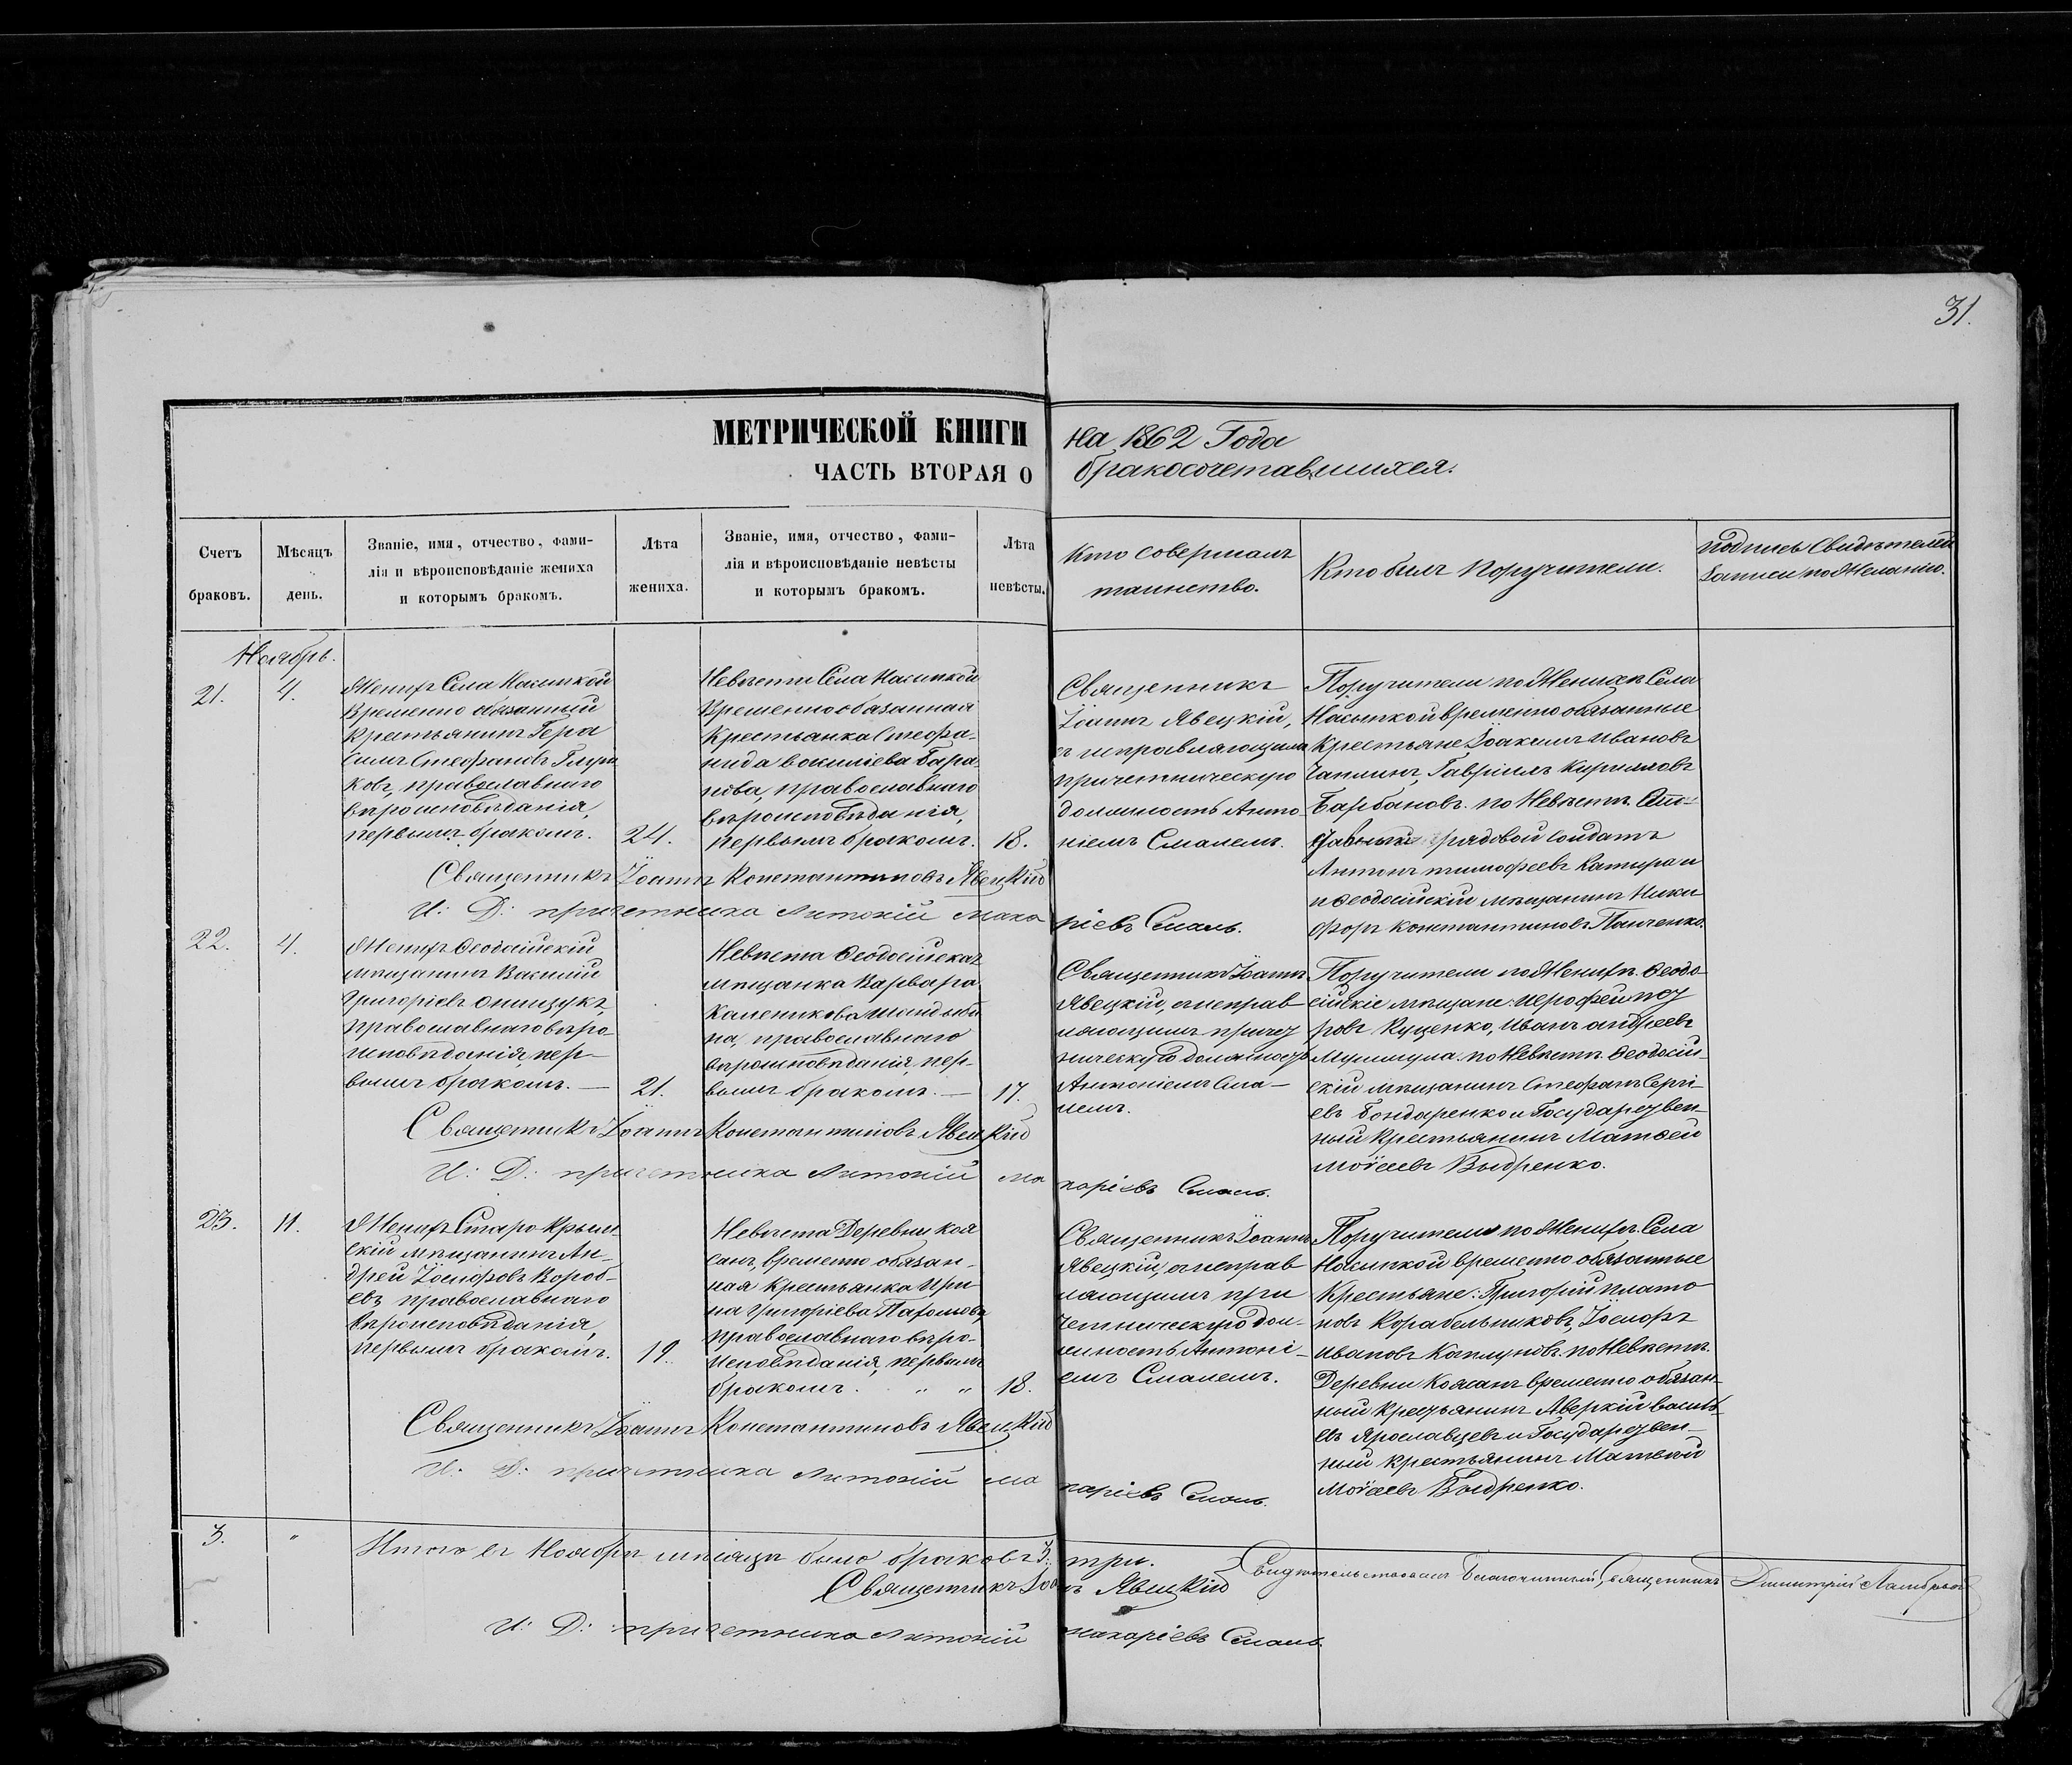 31.
МЕТРИЧЕСКОЙ КНИГИ на 1862 Года
ЧАСТЬ ВТОРАЯ О бракосочетавшихся.
Счетъ браковъ.
Мѣсяцъ день.
Званіе, имя, отчество, фами-
лія и вѣроисповѣданіе жениха
и которымъ бракомъ.
Лѣта жениха.
Званіе, имя, отчество, фами-
лія и вѣроисповѣданіе невѣсты
и которымъ бракомъ.
Лѣта невѣсты.
Кто совершалъ
таинство.
Кто былъ Поручители.
подпись Свидѣтелей
записи по желанію.
Ноябрь.
21.
4.
Женихъ Села Насыпкой
Временно обязанный
Крестьянинъ Гера
симъ Стефановъ
ковъ, православнаго
вѣроисповѣданія,
первымъ бракомъ.
24.
Невѣста Села Насипкой
Временнообязанная
Крестьянка Стефа-
нида Василіева Бара
нова, православнаго
вѣроисповѣданія,
первымъ бракомъ.
18.
Священникъ
Іоаннъ Явецкій,
съ исправляющимъ
причетническую
должность Анто
ніемъ Смалемъ.
Поручители по Женихѣ Села
Насыпкой временно обязанные
Крестьяне, Іоакимъ Ивановъ
Чаплинъ, Гавріилъ Кирилловъ
Барбановъ. по Невѣстѣ.
рядовой Солдатъ
Антонъ тимофеевъ
и Ѳеодосійскій мѣщанинъ Ники
форъ Константиновъ Панченко.
Священникъ Іоаннъ Константиновъ Явецкій
И: Д: причетника Антоній Мака ріевъ Смаль.
22.
4.
Женихъ Ѳеодосійскій
мѣщанинъ Василій
Григоріевъ Онищукъ,
Православнаго вѣро-
исповѣданія, пер-
вымъ бракомъ. —
21.
Невѣста Ѳеодосійская
мѣщанка Варвара
Каленикова
на, православнаго
вѣроисповѣданія, пер-
вымъ бракомъ. —
17.
Священникъ Іоаннъ
Явецкій, съ исправ
ляющимъ причет
ническую должность
Антоніемъ Сма-
лемъ.
Поручители по Женихѣ Ѳеодо-
сійскіе мѣщане: Иерофей
ровъ Куценко, Иванъ андреевъ
Мушмула. по Невѣстѣ. Ѳеодосій-
скій мѣщанинъ Стефанъ Сергі-
евъ Бондаренко и Государствен-
ный Крестьянинъ Матѳей
Моѵсеевъ Выдренко.
Священникъ Іоаннъ Константиновъ Явецкій
И: Д: причетника Антоній Ма каріевъ Смаль.
23.
11.
Женихъ Старо-Крым-
скій мѣщанинъ Ан-
дрей Іосифовъ Вороб-
евъ православнаго
вѣроисповѣданія,
первымъ бракомъ.
19.
Невѣста Деревни Коя
санъ, временно обязан-
ная Крестьянка Ири
на Григоріева Пахомова
православнаго вѣро-
исповѣданія, первымъ
бракомъ. " "
18.
Священникъ Іоаннъ
Явецкій, съ исправ
ляющимъ при
четническую дол-
жность Антоні-
емъ Смалемъ.
Поручители по Женихѣ Села
Насыпкой временно обязанные
Крестьяне: Григорій плато
новъ Корабельниковъ, Іосифъ
Ивановъ Каплуновъ. по Невѣстѣ.
Деревни Коясанъ временно обязан-
ный крестьянинъ Аверкій Василь-
евъ Ярославцевъ и Государствен-
ный крестьянинъ Матѳей
Моѵсеевъ Выдренко.
Священникъ Іоаннъ Константиновъ Явецкій
И: Д: причетника Антоній Ма каріевъ Смаль.
3.
"
Итого въ Ноябрѣ мѣсяцѣ было браковъ 3. три.
Священникъ Іоаннъ Явецкій
Свидѣтельствовалъ Благочинный, Священникъ Димитрій
И: Д: причетника Антоній Макаріевъ Смаль.